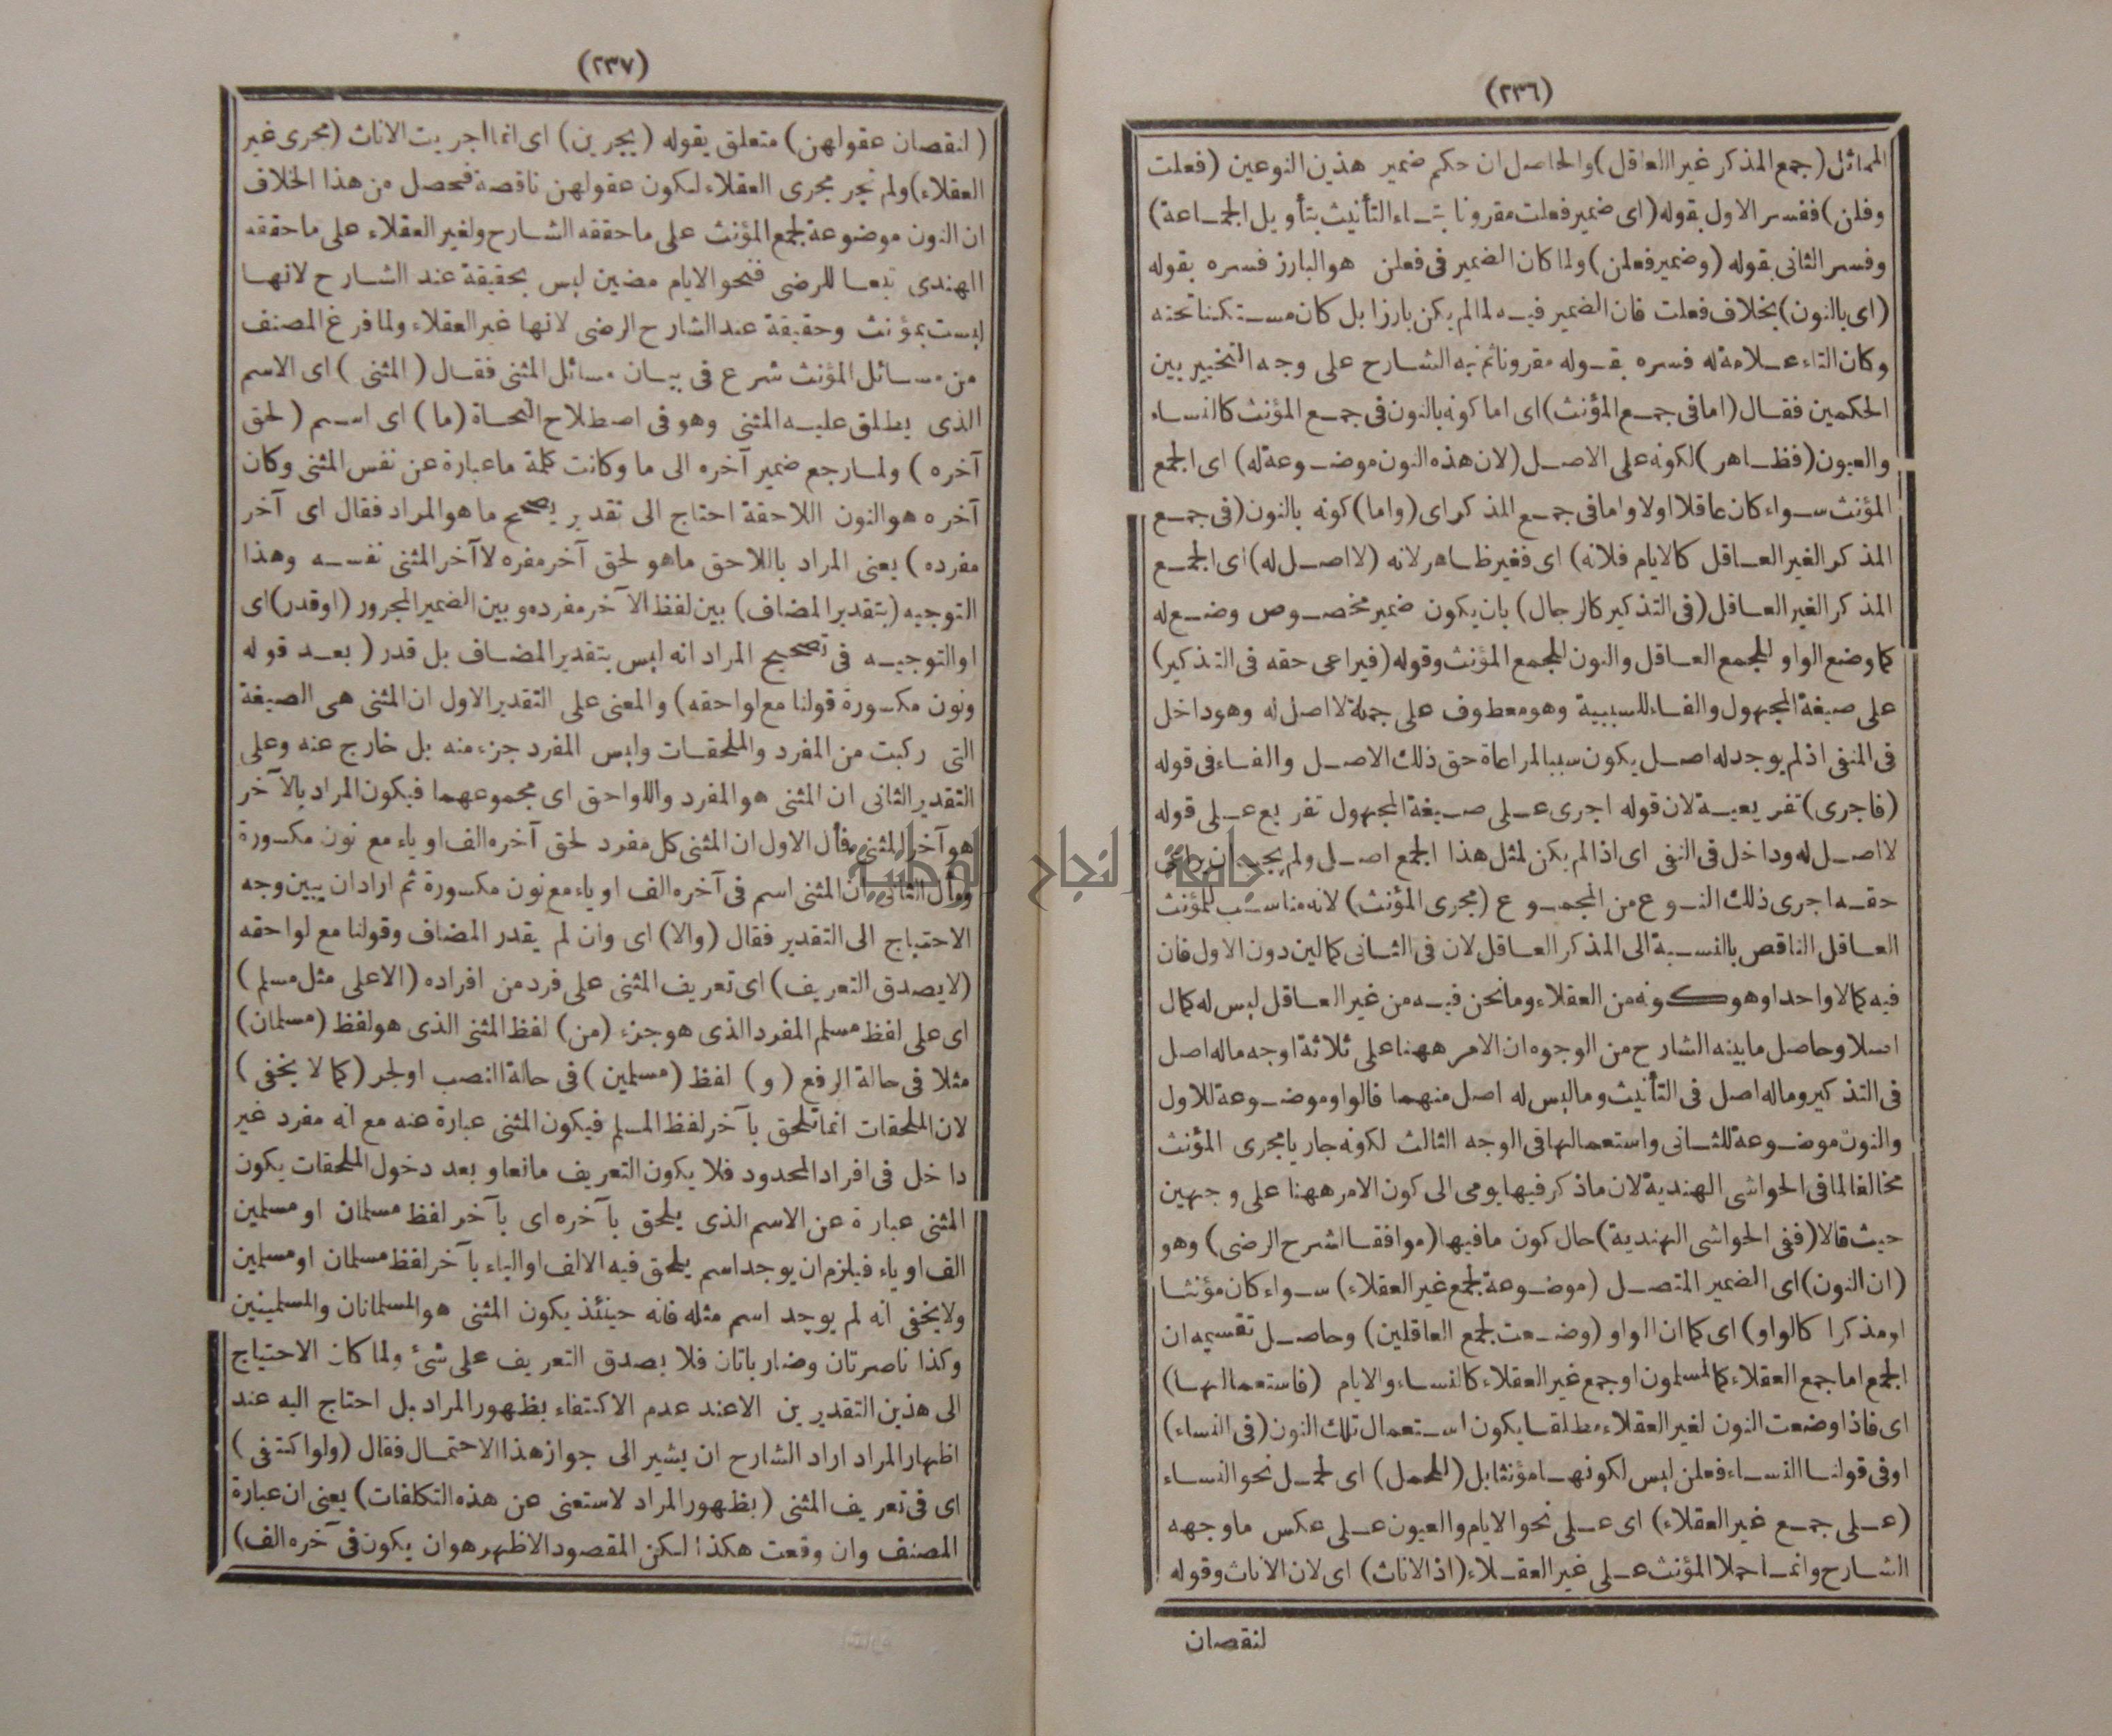 (٢٣٦)
المماثل (جمع المذكر غير العاقل) والحاصل ان حكم ضمير هذين النوعين (فعلت
وفلن) ففسر الاول بقوله (اى ضمير فعلت مقرونا بتاء التأنيث بتأويل الجماعة)
وفسر الثانى بقوله (وضمير فعلن) ولما كان الضمير فى فعلن هو البارز فسره بقوله
(اى بالنون) بخلاف فعلت فان الضمير فيه لما لم يكن بارزا بل كان مستكنا تحته
وكان التاء علامة له فسره بقوله مقرونا ثم نبه الشارح على وجه التخيير بين
الحكمين فقال (اما فى جمع المؤنث) اى اما كونه بالنون فى جمع المؤنث كالنساء
والعيون (فظاهر) لكونه على الاصل (لان هذه النون موضوعة له) اى الجمع
المؤنث سواء كان عاقلا اولا واما فى جمع المذكر اى (واما) كونه بالنون (فى جمع
المذكر الغير العاقل كالايام فلانه) اى فغير ظاهر لانه (لا اصل له) اى الجمع
المذكر الغير العاقل (فى التذكير كالرجال) بان يكون ضمير مخصوص وضع له
كما وضع الواو للجمع العاقل والنون للجمع المؤنث وقوله (فيراعى حقه فى التذكير)
على صيغة المجهول والفاء للسببية وهو معطوف على جملة لا اصل له وهو داخل
فى المنفى اذ لم يوجد له اصل يكون سببا لمراعاة حق ذلك الاصل والفاء فى قوله
(فاجرى) تفريعية لان قوله اجرى على صيغة المجهول تفريع على قوله
لا اصل له وداخل فى النفى اى اذا لم يكن لمثل هذا الجمع اصل ولم يجب ان يراعى
حقه اجرى ذلك النوع من المجموع (مجرى المؤنث) لانه مناسب للمؤنث
العاقل الناقص بالنسبة الى المذكر العاقل لان فى الثانى كمالين دون الاول فان
فيه كمالا واحدا وهو كونه من العقلاء وما نحن فيه من غير العاقل ليس له كمال
اصلا وحاصل ما بينه الشارح من الوجوه ان الامر ههنا على ثلاثة اوجه ماله اصل
فى التذكير وماله اصل فى التأنيث وما ليس له اصل منهما فالواو موضوعة للاول
والنون موضوعة للثانى واستعمالها فى الوجه الثالث لكونه جاريا مجرى المؤنث
مخالفا لما فى الحواشى الهندية لان ما ذكر فيها يومى الى كون الامر ههنا على وجهين
حيث قالا (ففى الحواشى الهندية) حال كون ما فيها (موافقا لشرح الرضى) وهو
(ان النون) اى الضمير المتصل (موضوعة لجمع غير العقلاء) سواء كان مؤنثا
اومذكرا (كالواو) اى كما ان الواو (وضعت لجمع العاقلين) وحاصل تقسيمه ان
الجمع اما جمع العقلاء كالمسلمون او جمع غير العقلاء كالنساء والايام (فاستعمالها)
اى فاذا وضعت النون لغير العقلاء مطلقا يكون استعمال تلك النون (فى النساء)
اوفى قولنا النساء فعلن ليس لكونها مؤنثا بل (للحمل) اى لحمل نحو النساء
(على جمع غير العقلاء) اى على نحو الايام والعيون على عكس ما وجهه
الشارح وانما حملا المؤنث على غير العقلاء (اذ الاناث) اى لان الاناث وقوله
لنقصان
(٢٣٧)
(لنقصان عقولهن) متعلق بقوله (يجرين) اى انما اجريت الاناث (مجرى غير
العقلاء) ولم تجر مجرى العقلاء لكون عقولهن ناقصة فحصل من هذا الخلاف
ان النون موضوعة لجمع المؤنث على ما حققه الشارح ولغير العقلاء على ما حققه
الهندى تبعا للرضى فنحو الايام مضين ليس بحقيقة عند الشارح لانها
ليست بمؤنث وحقيقة عند الشارح الرضى لانها غير العقلاء ولما فرغ المصنف
من مسائل المؤنث شرع فى بيان مسائل المثنى فقال (المثنى) اى الاسم
الذى يطلق عليه المثنى وهو فى اصطلاح النحاة (ما) اى اسم (لحق
آخره) ولما رجع ضمير آخره الى ما وكانت كلمة ما عبارة عن نفس المثنى وكان
آخره هو النون اللاحقة احتاج الى تقدير يصحح ما هو المراد فقال اى آخر
مفرده) يعنى المراد باللاحق ما هو لحق آخر مفره لا آخر المثنى نفسه وهذا
التوجيه (بتقدير المضاف) بين لفظ الآخر مفرده وبين الضمير المجرور (اوقدر) اى
او التوجيه فى تصحيح المراد انه ليس بتقدير المضاف بل قدر (بعد قوله
ونون مكسورة قولنا مع لواحقه) والمعنى على التقدير الاول ان المثنى هى الصيغة
التى ركبت من المفرد والملحقات وليس المفرد جزء منه بل خارج عنه وعلى
التقدير الثانى ان المثنى هو المفرد واللواحق اى مجموعهما فيكون المراد بالآخر
هو آخر المثنى فأل الاول ان المثنى كل مفرد لحق آخره الف او ياء مع نون مكسورة
ومأل الثانى ان المثنى اسم فى آخره الف او ياء مع نون مكسورة ثم اراد ان يبين وجه
الاحتياج الى التقدير فقال (والا) اى وان لم يقدر المضاف وقولنا مع لواحقه
(لا يصدق التعريف) اى تعريف المثنى على فرد من افراده (الا على مثل مسلم)
اى على لفظ مسلم المفرد الذى هو جزء (من) لفظ المثنى الذى هو لفظ (مسلمان)
مثلا فى حالة الرفع (و) لفظ (مسلمين) فى حالة النصب اولجر (كما لا يخفى)
لان الملحقات انما تلحق بآخر لفظ المسلم فيكون المثنى عبارة عنه مع انه مفرد غير
داخل فى افراد المحدود فلا يكون التعريف مانعا وبعد دخول الملحقات يكون
المثنى عبارة عن الاسم الذى يلحق بآخره اى بآخر لفظ مسلمان او مسلمين
الف او ياء فيلزم ان يوجد اسم يلحق فيه الالف او الياء بآخر لفظ مسلمان او مسلمين
ولا يخفى انه لم يوجد اسم مثله فانه حينئذ يكون المثنى هو المسلمانان والمسلمينين
وكذا ناصرتان وضاربانان فلا يصدق التعريف على شئ ولما كان الاحتياج
الى هذين التقديرين الا عند عدم الاكتفاء بظهور المراد بل احتاج اليه عند
اظهار المراد اراد الشارح ان يشير الى جواز هذا الاحتمال فقال (ولو اكتفى)
اى فى تعريف المثنى (بظهور المراد لاستغنى عن هذه التكلفات) يعنى ان عبارة
المصنف وان وقعت هكذا لكن المقصود الاظهر هو ان يكون فى آخره الف)
جامعة النجاح الوطنية